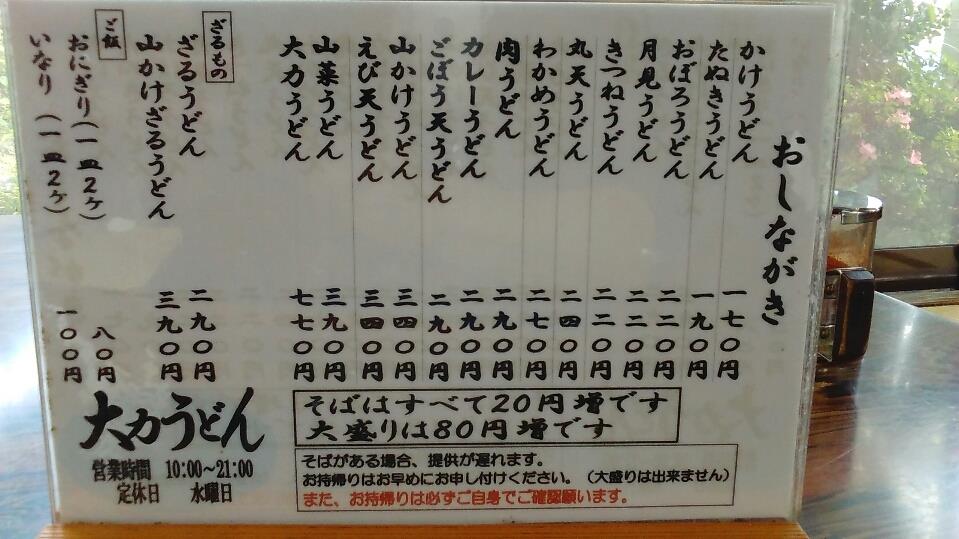 おしながき
かけうどん 一七〇円
たぬきうどん 一九〇円
おぼろうどん 二二〇円
月見うどん 二二〇円
きつねうどん 二二〇円
丸天うどん 二四〇円
わかめうどん 二七〇円
肉うどん 二九〇円
カレーうどん 二九〇円
ごぼう天うどん 二九〇円
山かけうどん 三四〇円
えび天うどん 三四〇円
山菜うどん 三九〇円
大力うどん 七七〇円
ざるもの
ざるうどん 二九〇円
山かけざるうどん 三九〇円
ご飯
おにぎり(一皿2ケ) 八〇円
いなり(一皿2ケ) 一〇〇円
そばはすべて20円増です
大盛りは80円増です
そばがある場合、提供が遅れます。
お持帰りはお早めにお申し付けください。(大盛りは出来ません)
また、お持帰りは必ずご自身でご確認願います。
大力うどん
営業時間 10:00~21:00
定休日 水曜日